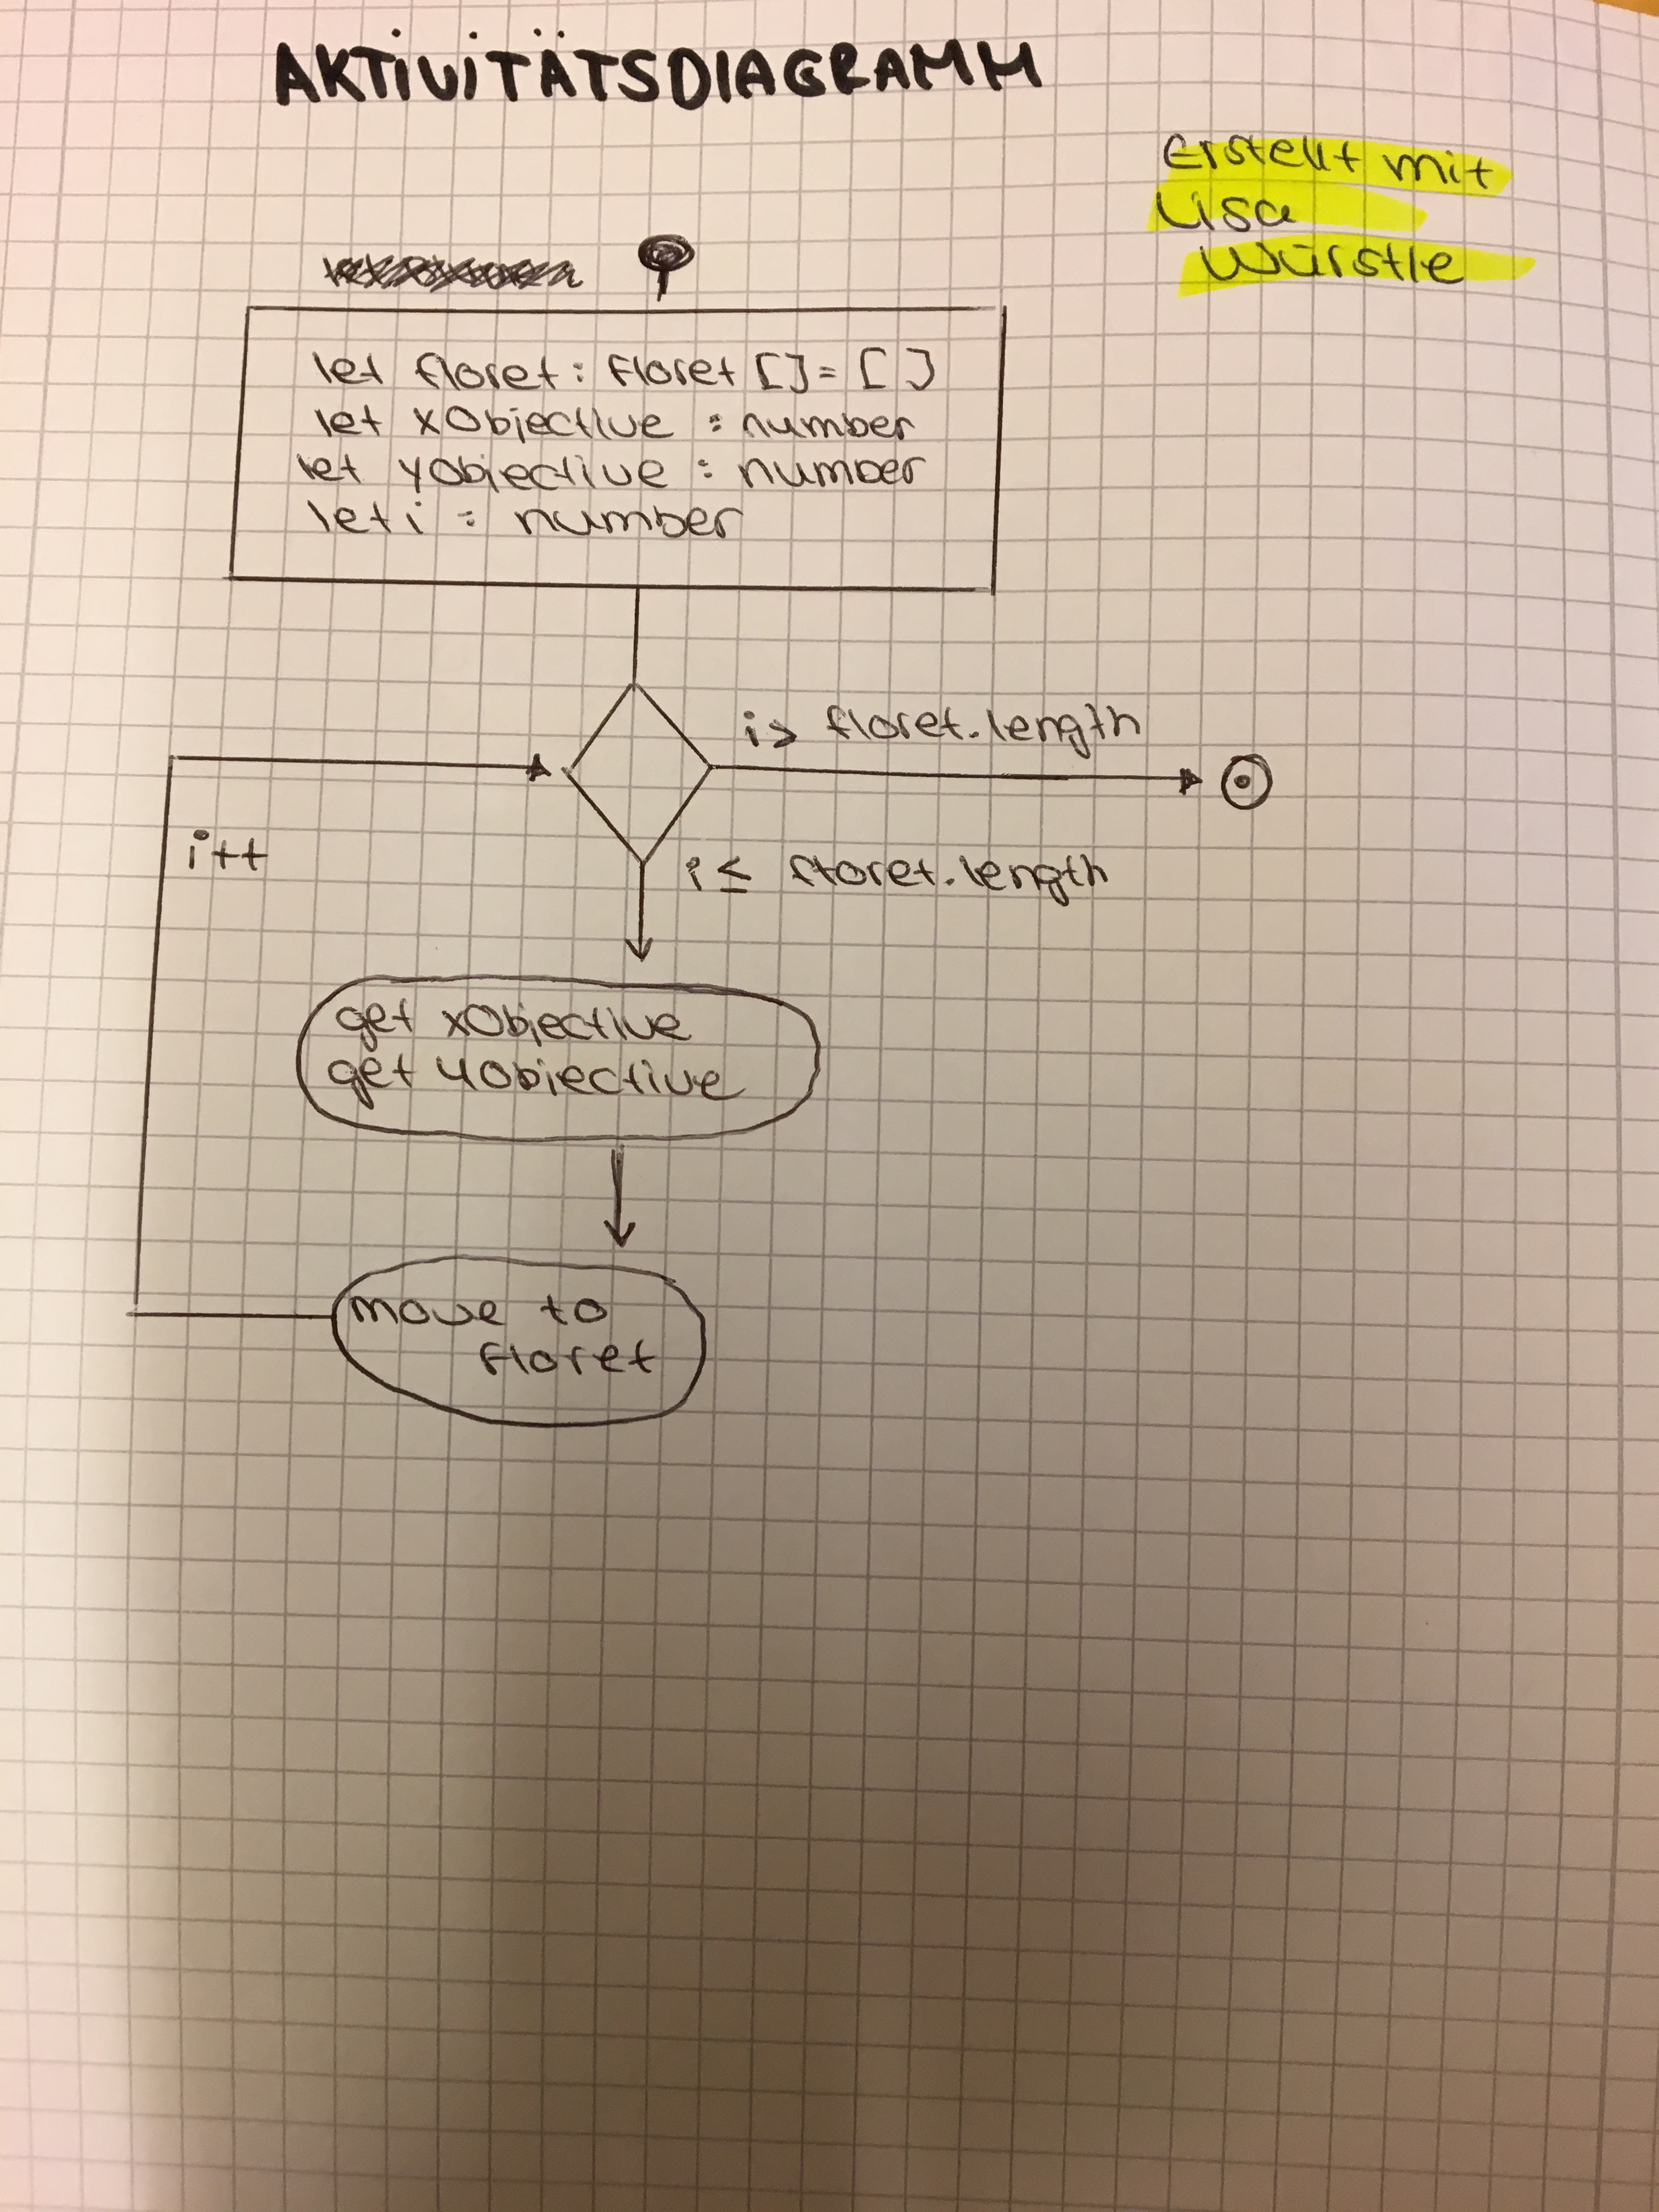 AKTiViTÄTSDIAGRAMM
Erstellt mit
Lisa
Würstle
let floret : Floret [] = [ ]
let xObjective : number
let yObjective : number
let i : number
i > floret.length
i++
i ≤ floret.length
get xObjective
get yObjective
move to
floret